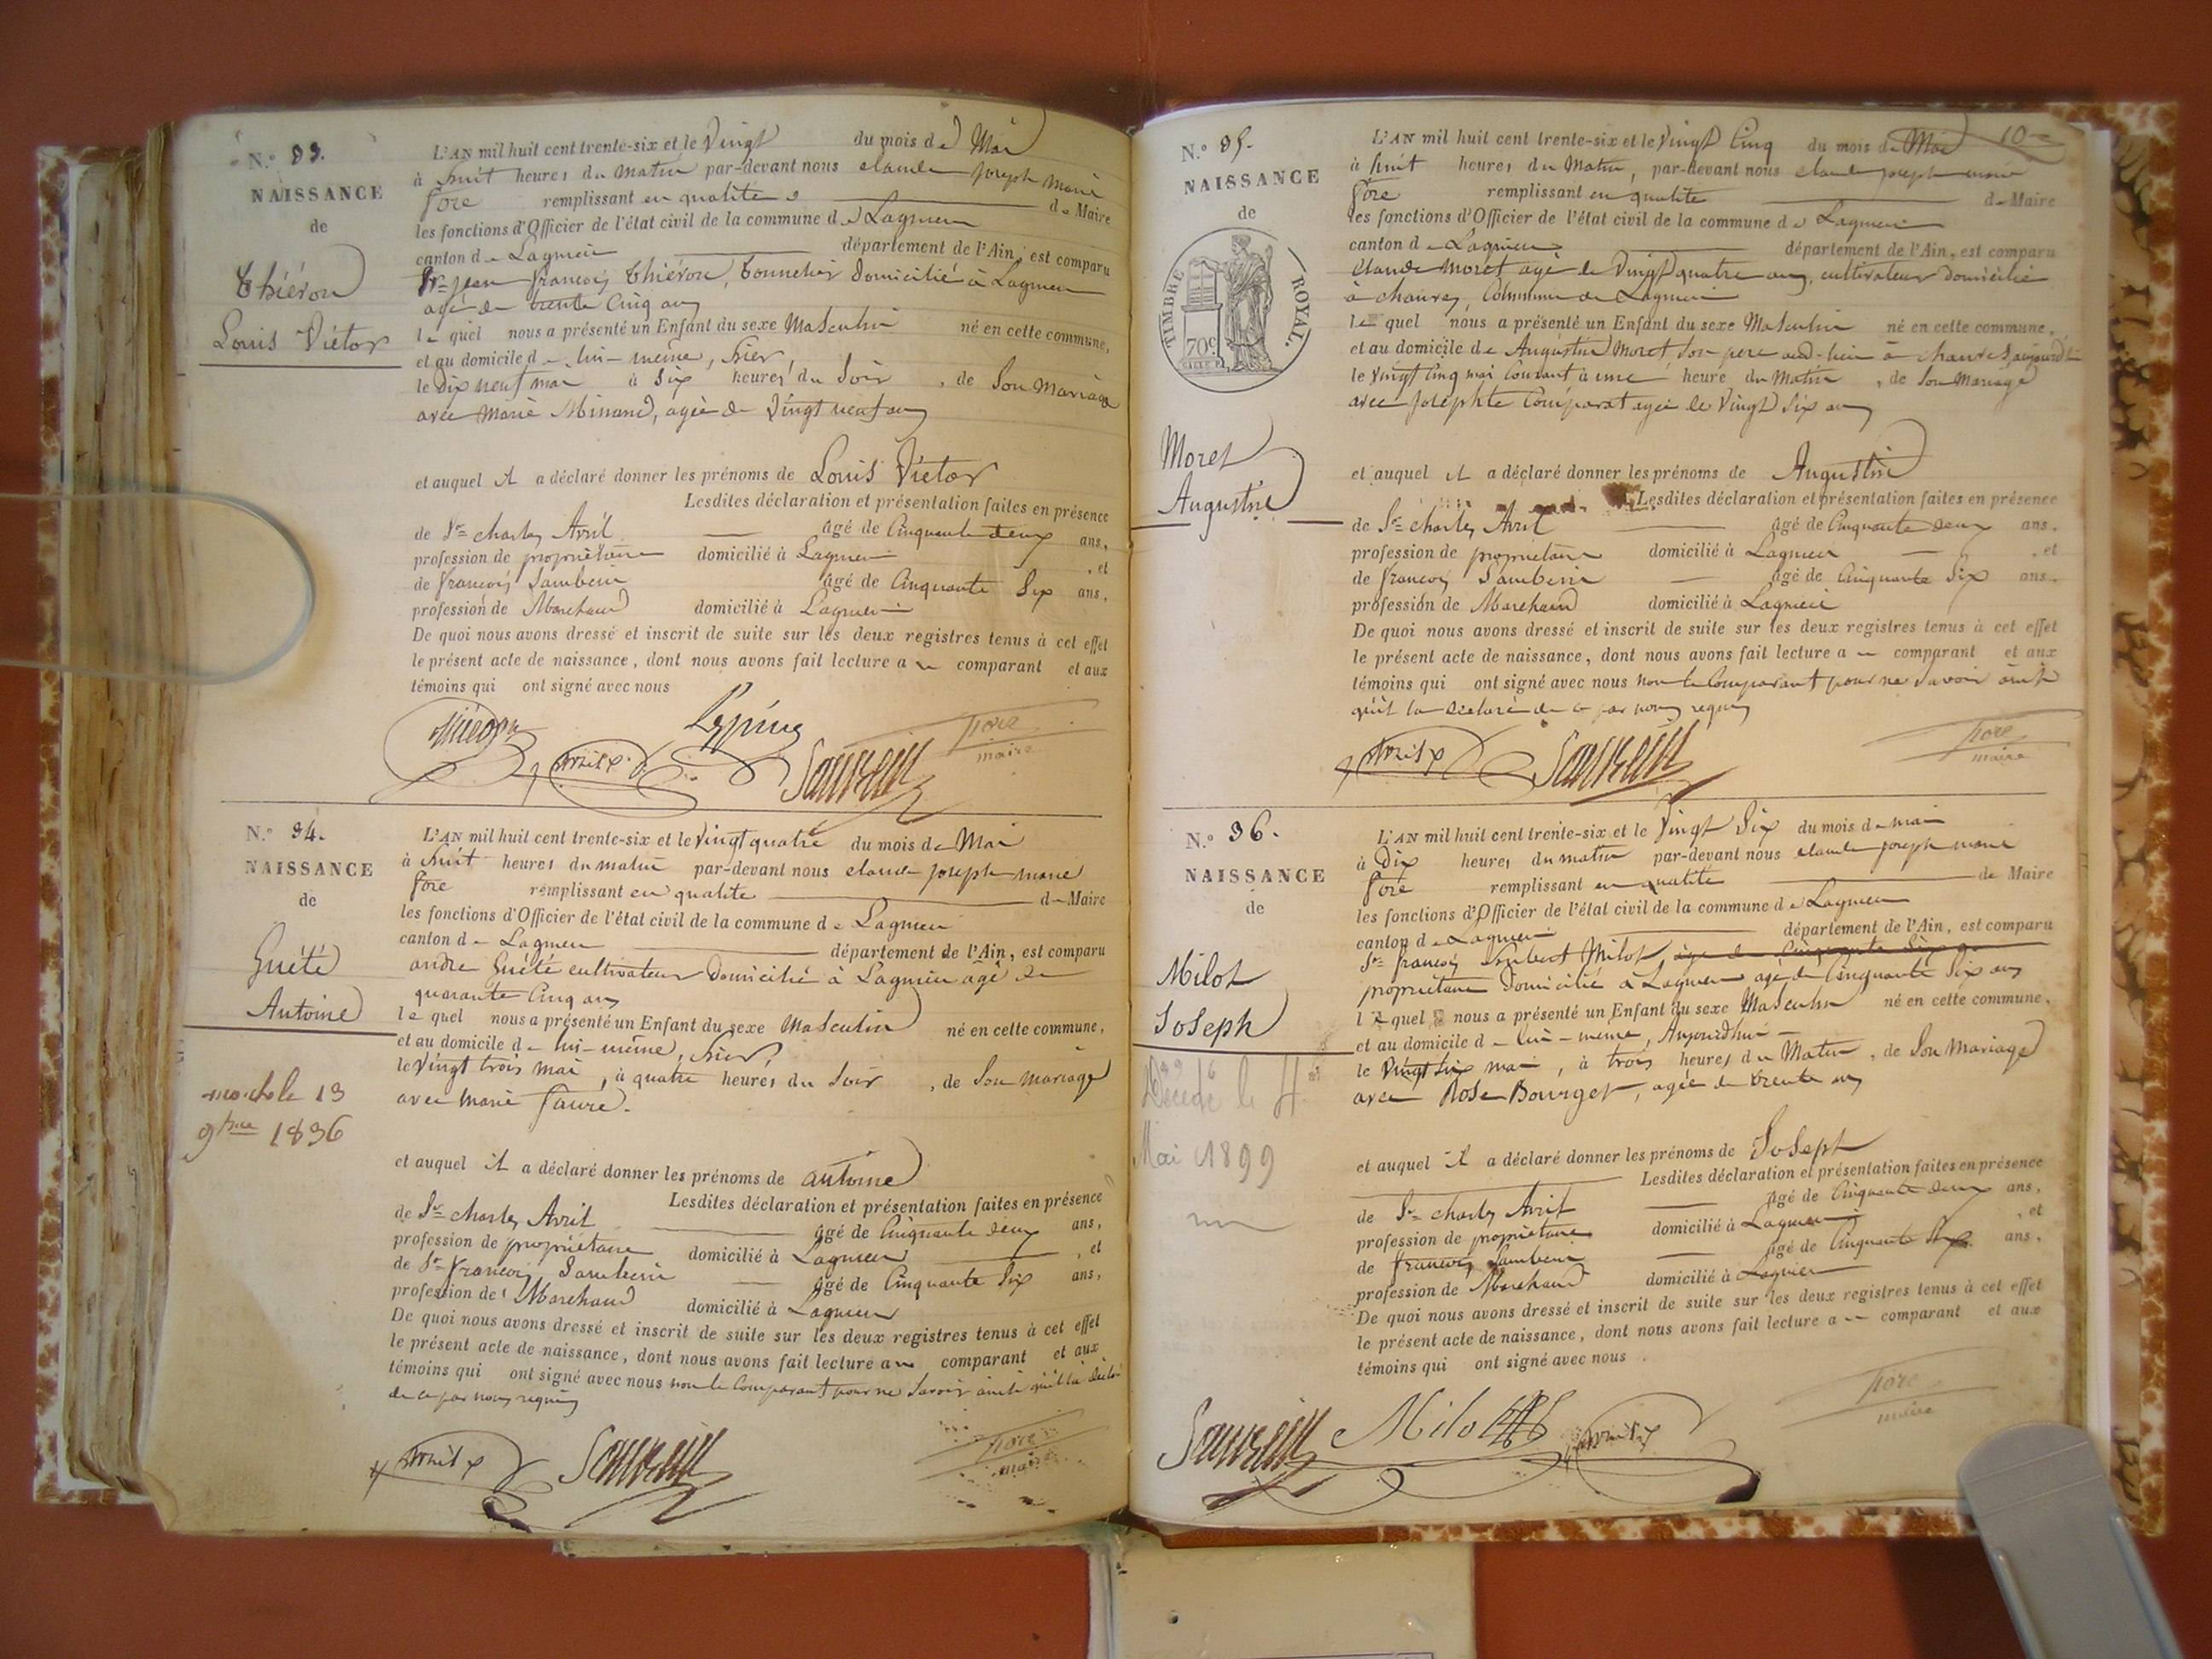 N.º 33.
NAISSANCE
de
Thiéron
Louis Victor
L'AN mil huit cent trente-six et le Vingt du mois de Mai
à huit heures du matin par-devant nous claude joseph marie
fore remplissant en qualite d. Maire
les fonctions d'Officier de l'état civil de la commune de Lagnieu
canton de Lagnieu département de l'Ain, est comparu
Sr jean françois Thiéron, bonnetier domicilié à Lagnieu
agé de trente Cinq ans
le quel nous a présenté un Enfant du sexe Masculin né en cette commune,
et au domicile de lui-même, hier,
le Dix neuf mai à six heures du Soir, de Son Mariage
avec Marie Minand, agée de Vingt neuf ans
et auquel il a déclaré donner les prénoms de Louis Victor
Lesdites déclaration et présentation faites en présence
de Sr charles Avril âgé de Cinquante deux ans,
profession de propriétaire domicilié à Lagnieu, et
de françois Sambein âgé de Cinquante Six ans,
profession de Marchand domicilié à Lagnieu
De quoi nous avons dressé et inscrit de suite sur les deux registres tenus à cet effet
le présent acte de naissance, dont nous avons fait lecture au comparant et aux
témoins qui ont signé avec nous
Thiéron
Avril
fore
maire
N.º 34.
NAISSANCE
de
Guété
Antoine
mort le 13
9bre 1836
L'AN mil huit cent trente-six et le Vingt quatre du mois de Mai
à huit heures du matin par-devant nous claude joseph marie
fore remplissant en qualite de Maire
les fonctions d'Officier de l'état civil de la commune de Lagnieu
canton de Lagnieu département de l'Ain, est comparu
andré Guété cultivateur Domicilié à Lagnieu agé de
quarante Cinq ans
le quel nous a présenté un Enfant du sexe Masculin né en cette commune,
et au domicile de lui-même, hier,
le Vingt trois mai, à quatre heures du Soir, de Son mariage
avec Marie faure.
et auquel il a déclaré donner les prénoms de antoine
Lesdites déclaration et présentation faites en présence
de Sr charles Avril âgé de Cinquante deux ans,
profession de propriétaire domicilié à Lagnieu, et
de Sr françois Sambein âgé de Cinquante Six ans,
profession de Marchand domicilié à Lagnieu
De quoi nous avons dressé et inscrit de suite sur les deux registres tenus à cet effet
le présent acte de naissance, dont nous avons fait lecture au comparant et aux
témoins qui ont signé avec nous non le Comparant pour ne Savoir ainsi qu'il la déclaré
de ce par nous requis
Avril
fore
maire
10
N.º 35.
NAISSANCE
de
TIMBRE ROYAL.
70c
Moret
Augustin
L'AN mil huit cent trente-six et le Vingt Cinq du mois de Mai
à huit heures du Matin, par-devant nous claude joseph marie
fore remplissant en qualite de Maire
les fonctions d'Officier de l'état civil de la commune de Lagnieu
canton de Lagnieu département de l'Ain, est comparu
Claude Moret agé de Vingt quatre ans, cultivateur domicilié
à chauves, Commune de Lagnieu
le quel nous a présenté un Enfant du sexe Masculin né en cette commune,
et au domicile de Augustin Moret Son pere aud. lieu à chauves aujourd'hui
le Vingt Cinq mai Courant à une heure du Matin, de Son Mariage
avec Josephte Comparat agée de Vingt Six ans
et auquel il a déclaré donner les prénoms de Augustin
Lesdites déclaration et présentation faites en présence
de Sr charles Avril âgé de Cinquante deux ans,
profession de propriétaire domicilié à Lagnieu, et
de françois Sambein âgé de Cinquante Six ans,
profession de Marchand domicilié à Lagnieu
De quoi nous avons dressé et inscrit de suite sur les deux registres tenus à cet effet
le présent acte de naissance, dont nous avons fait lecture au comparant et aux
témoins qui ont signé avec nous non le Comparant pour ne Savoir ainsi
qu'il la déclaré de ce par nous requis
Avril
fore
maire
N.º 36.
NAISSANCE
de
Milot
Joseph
Décédé le 4
Mai 1899
L'AN mil huit cent trente-six et le Vingt Six du mois de mai
à Dix heures du matin par-devant nous claude joseph marie
fore remplissant en qualité de Maire
les fonctions d'Officier de l'état civil de la commune de Lagnieu
canton de Lagnieu département de l'Ain, est comparu
Sr françois Milot, agé de Cinquante Six
propriétaire Domicilié à Lagnieu agé de Cinquante Six ans
le quel nous a présenté un Enfant du sexe Masculin né en cette commune,
et au domicile de lui-même, Aujourdhui
le Vingt Six mai, à trois heures du Matin, de Son Mariage
avec Rose Bourget, agée de trente ans
et auquel il a déclaré donner les prénoms de Joseph
Lesdites déclaration et présentation faites en présence
de Sr charles Avril âgé de Cinquante deux ans,
profession de propriétaire domicilié à Lagnieu, et
de françois Sambein âgé de Cinquante Six ans,
profession de Marchand domicilié à Lagnieu
De quoi nous avons dressé et inscrit de suite sur les deux registres tenus à cet effet
le présent acte de naissance, dont nous avons fait lecture au comparant et aux
témoins qui ont signé avec nous
Milot
Avril
fore
maire